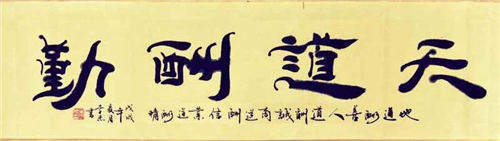 天道酬勤
地道酬善人道酬誠商道酬信業道酬精
戊戌年
夏月